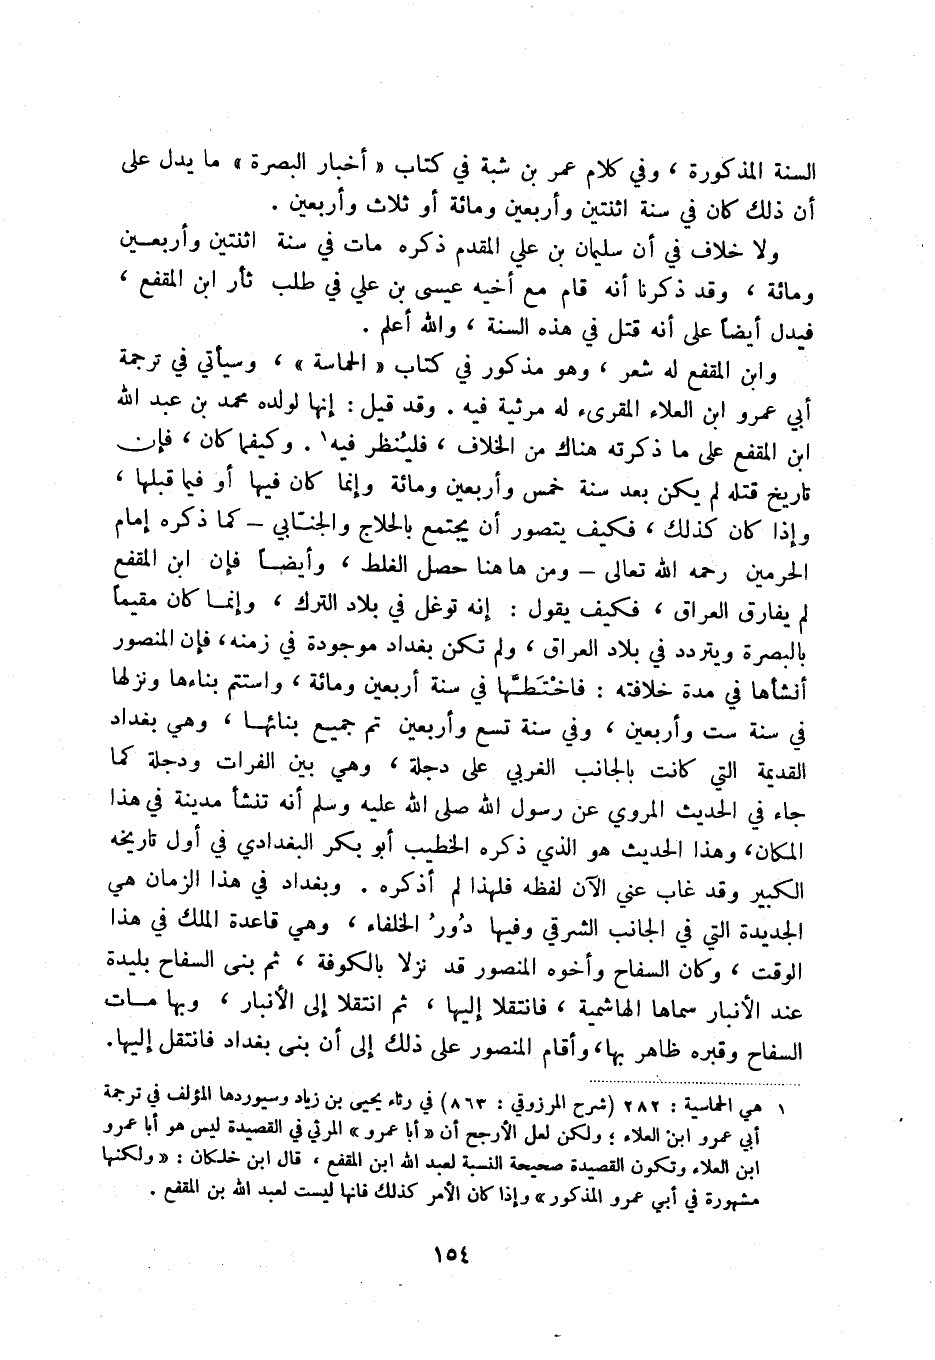 السنة المذكورة ، وفي كلام عمر بن شبة في كتاب « أخبار البصرة » ما يدل على
أن ذلك كان في سنة اثنتين وأربعين ومائة أو ثلاث وأربعين .
ولا خلاف في أن سليمان بن علي المقدم ذكره مات في سنة اثنتين وأربعين
ومائة ، وقد ذكرنا أنه قام مع أخيه عيسى بن علي في طلب ثأر ابن المقفع ،
فيدل أيضاً على أنه قتل في هذه السنة ، والله أعلم .
وابن المقفع له شعر ، وهو مذكور في كتاب « الحماسة » ، وسيأتي في ترجمة
أبي عمرو ابن العلاء المقرىء له مرثية فيه . وقد قيل : إنها لولده محمد بن عبد الله
ابن المقفع على ما ذكرته هناك من الخلاف ، فليُنظر فيه١ . وكيفما كان ، فإن
تاريخ قتله لم يكن بعد سنة خمس وأربعين ومائة وإنما كان فيها أو فيما قبلها ،
وإذا كان كذلك ، فكيف يتصور أن يجتمع بالحلاج والجنّابي – كما ذكره إمام
الحرمين رحمه الله تعالى – ومن ها هنا حصل الغلط ، وأيضاً فإن ابن المقفع
لم يفارق العراق ، فكيف يقول : إنه توغل في بلاد الترك ، وإنما كان مقيماً
بالبصرة ويتردد في بلاد العراق ، ولم تكن بغداد موجودة في زمنه، فإن المنصور
أنشأها في مدة خلافته : فاخْتَطَّها في سنة أربعين ومائة ، واستتم بناءها ونزلها
في سنة ست وأربعين ، وفي سنة تسع وأربعين تم جميع بنائها ، وهي بغداد
القديمة التي كانت بالجانب الغربي على دجلة ، وهي بين الفرات ودجلة كما
جاء في الحديث المروي عن رسول الله صلى الله عليه وسلم أنه تنشأ مدينة في هذا
المكان، وهذا الحديث هو الذي ذكره الخطيب أبو بكر البغدادي في أول تاريخه
الكبير وقد غاب عني الآن لفظه فلهذا لم أذكره . وبغداد في هذا الزمان هي
الجديدة التي في الجانب الشرقي وفيها دُورُ الخلفاء ، وهي قاعدة الملك في هذا
الوقت ، وكان السفاح وأخوه المنصور قد نزلا بالكوفة ، ثم بنى السفاح بليدة
عند الأنبار سماها الهاشمية ، فانتقلا إليها ، ثم انتقلا إلى الأنبار ، وبها مات
السفاح وقبره ظاهر بها، وأقام المنصور على ذلك إلى أن بنى بغداد فانتقل إليها.
١ هي الحماسية : ٢٨٢ (شرح المرزوقي : ٨٦٣) في رثاء يحيى بن زياد وسيوردها المؤلف في ترجمة
أبي عمرو ابن العلاء ؛ ولكن لعل الأرجح أن « أبا عمرو » المرثي في القصيدة ليس هو أبا عمرو
ابن العلاء وتكون القصيدة صحيحة النسبة لعبد الله ابن المقفع ، قال ابن خلكان : « ولكنها
مشهورة في أبي عمرو المذكور » وإذا كان الأمر كذلك فانها ليست لعبد الله بن المقفع .
١٥٤